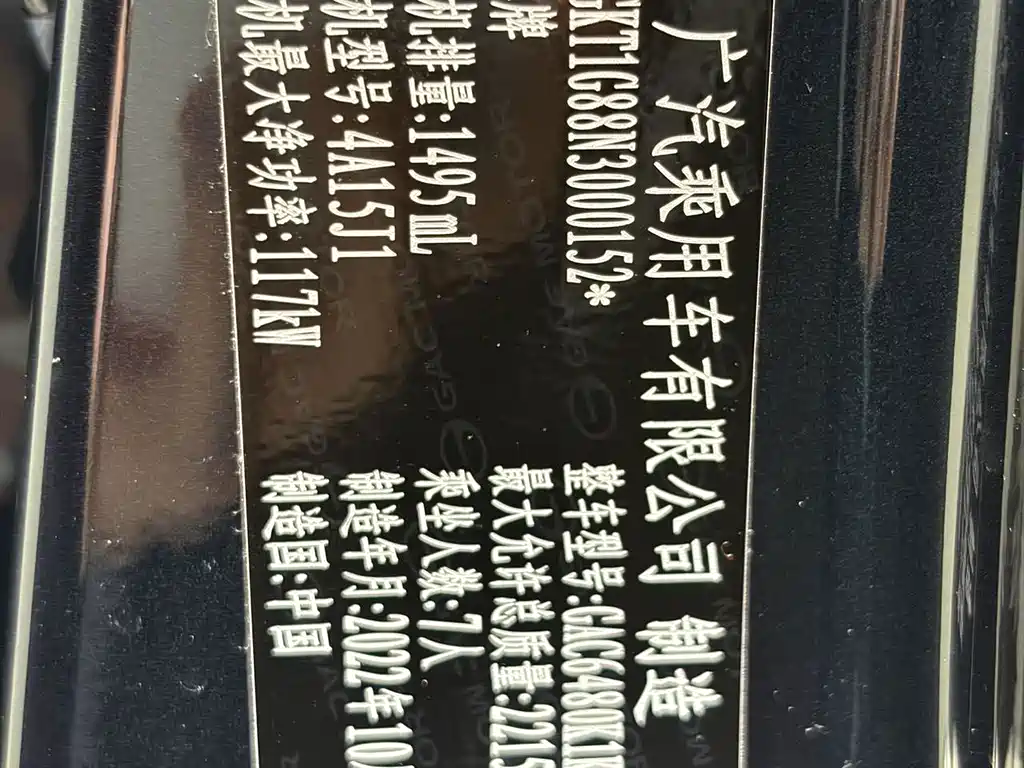 广汽乘用车有限公司 制造
GKT1G88N3000152* 整车型号:GAC6480K1
牌 最大允许总质量:2215
机排量:1495mL 乘坐人数:7人
机型号:4A15J1 制造年月:2022年10
机最大净功率:117kW 制造国:中国